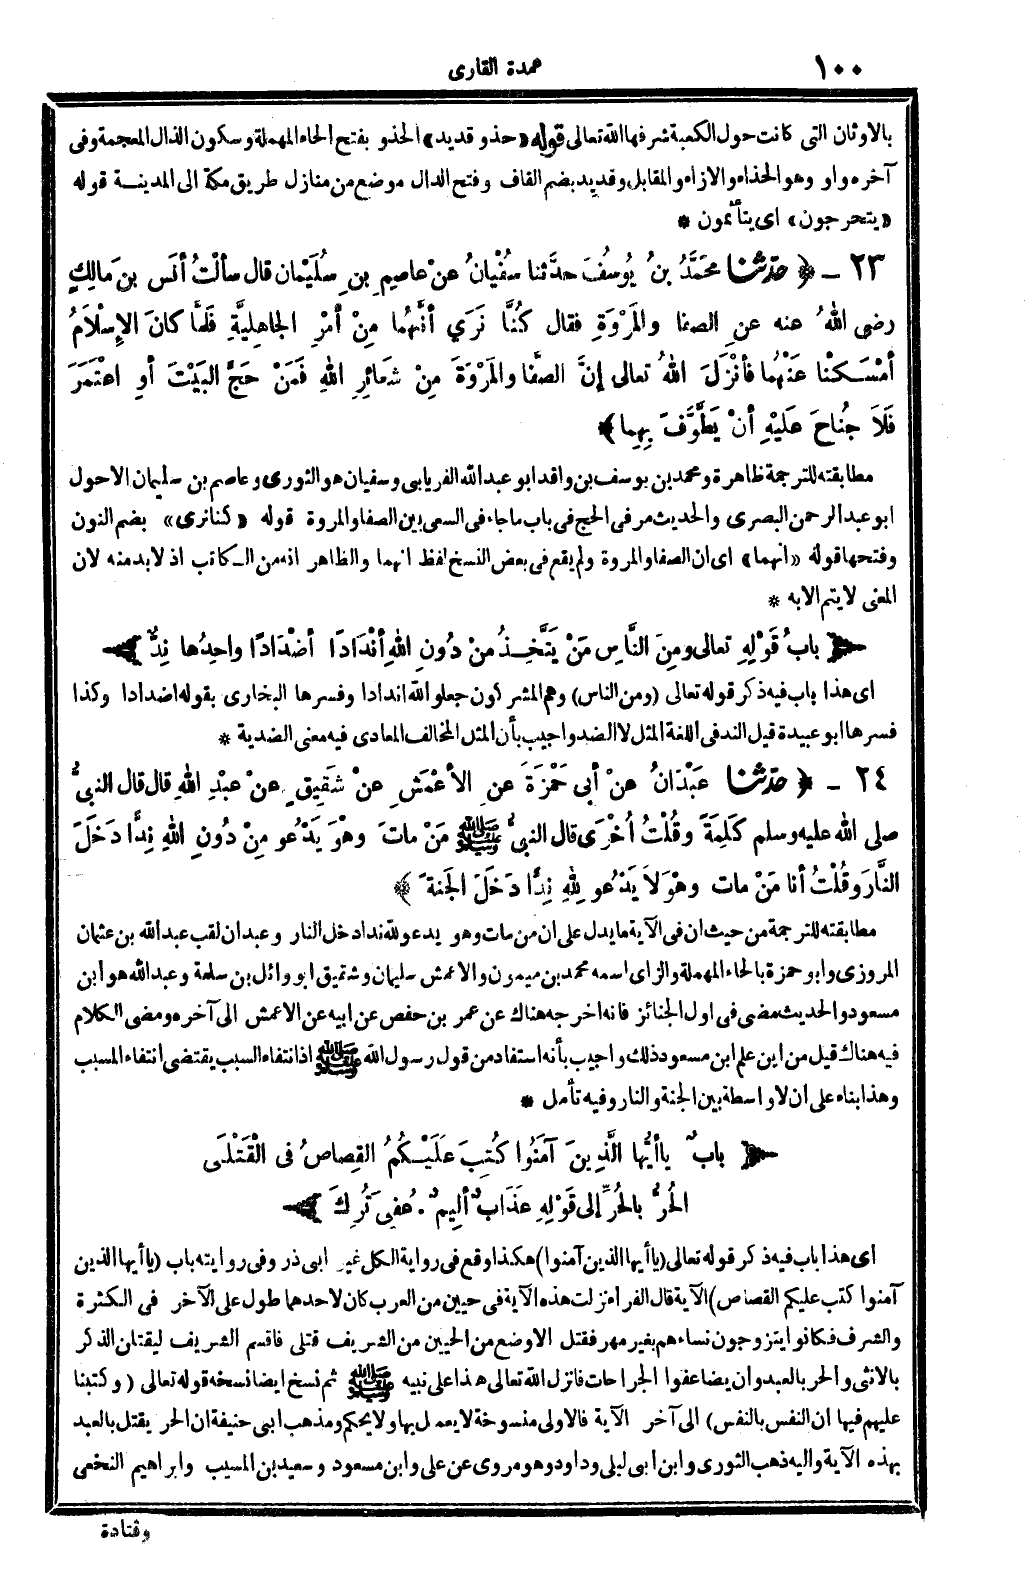 ١٠٠ عمدة القارى
بالاوثان التى كانت حول الكعبة شرفها الله تعالى قوله «حذو قديد» الحذو بفتح الحاء المهملة وسكون الذال المعجمة وفى
آخره واو وهو الحذاء والازاء والمقابل وقديد بضم القاف وفتح الدال موضع من منازل طريق مكة الى المدينة قوله
«يتحرجون» اى يتأثمون *
٢٣ ـ ﴿ حدّثنا محَمَّدُ بنُ يُوسُفَ حدَّثنا سُفْيانُ عنْ عاصِمِ بنِ سُلَيْمان قال سألْتُ أنَس بنَ مالِكٍ
رضى اللهُ عنه عنِ الصفا والمَرْوَةِ فقال كُنَّا نَرَي أنَّهُما مِنْ أمْرِ الجاهليَّةِ فلَمَّا كانَ الإِسْلاَمُ
أمْسَكْنا عَنْهُما فأنْزَلَ اللهُ تعالى إنَّ الصفَّا والمَرْوَةَ مِنْ شَعائِرِ اللهِ فَمَنْ حَجَّ البَيْتَ أوِ اعْتَمَرَ
فَلاَ جُناحَ عَلَيْهِ أنْ يَطَّوَّفَ بِهِما﴾
مطابقته للترجمة ظاهرة ومحمد بن يوسف بن واقد ابو عبد الله الفريابى وسفيان هو الثورى وعاصم بن سليمان الاحول
ابو عبد الرحمن البصرى والحديث مر فى الحج فى باب ما جاء فى السعى بين الصفا والمروة قوله «كنا نرى» بضم النون
وفتحها قوله «انهما» اى ان الصفا والمروة ولم يقع فى بعض النسخ لفظ انهما والظاهر انه من الكاتب اذ لابد منه لان
المعنى لا يتم الا به *
﴿ بابُ قَوْلِهِ تعالى ومِنَ النَّاسِ مَنْ يَتَّخِذُ مِنْ دُونِ اللهِ أنْدَادًا أضْدَادًا واحِدُها نِدٌّ ﴾
اى هذا باب فيه ذكر قوله تعالى (ومن الناس) وهم المشركون جعلوا لله اندادا وفسرها البخارى بقوله اضدادا وكذا
فسرها ابو عبيدة قيل الند فى اللغة المثل لا الضد واجيب بأن المثل المخالف المعادى فيه معنى الضدية *
٢٤ ـ ﴿ حدّثنا عَبْدَانُ عنْ أبى حَمْزَةَ عنِ الأعْمَشِ عنْ شَقيقٍ عنْ عبْدِ اللهِ قال قال النبىُّ
صلى الله عليه وسلم كَلِمَةً وقُلْتُ أُخْرَى قال النبىُّ ﷺ مَنْ ماتَ وهْوَ يَدْعُو مِنْ دُونِ اللهِ نِدًّا دَخَلَ
النَّارَ وقُلْتُ أنا مَنْ مات وهْوَ لاَ يَدْعُو لِلهِ نِدًّا دَخَلَ الجَنةَ ﴾
مطابقته للترجمة من حيث ان فى الآية ما يدل على ان من مات وهو يدعو لله ندا دخل النار وعبدان لقب عبد الله بن عثمان
المروزى وابو حمزة بالحاء المهملة والزاى اسمه محمد بن ميمون والاعمش سليمان وشقيق ابو وائل بن سلمة وعبد الله هو ابن
مسعود والحديث مضى فى اول الجنائز فانه اخرجه هناك عن عمر بن حفص عن ابيه عن الاعمش الى آخره ومضى الكلام
فيه هناك قيل من اين علم ابن مسعود ذلك واجيب بأنه استفاد من قول رسول الله ﷺ اذ انتفاء السبب يقتضى انتفاء المسبب
وهذا بناء على ان لا واسطة بين الجنة والنار وفيه تأمل *
﴿ بابٌ ياأيُّها الَّذِينَ آمَنُوا كُتِبَ عَلَيْكُمُ القِصاصُ فى الْقَتْلَى
الحُرُّ بالحُرِّ إلى قَوْلِهِ عَذَابٌ أليمٌ . عُفِىَ تُرِكَ ﴾
اى هذا باب فيه ذكر قوله تعالى (يا أيها الذين آمنوا) هكذا وقع فى رواية الكل غير ابى ذر وفى روايته باب (يا أيها الذين
آمنوا كتب عليكم القصاص) الآية قال الفراء نزلت هذه الآية فى حيين من العرب كان لاحدهما طول على الآخر فى الكثرة
والشرف فكانوا يتزوجون نساءهم بغير مهر فقتل الاوضع من الحيين من الشريف قتلى فاقسم الشريف ليقتلن الذكر
بالانثى والحر بالعبد وان يضاعفوا الجراحات فانزل الله تعالى هذا على نبيه ﷺ ثم نسخ ايضا نسخه قوله تعالى (وكتبنا
عليهم فيها ان النفس بالنفس) الى آخر الآية فالاولى منسوخة لا يعمل بها ولا يحكم ومذهب ابى حنيفة ان الحر يقتل بالعبد
بهذه الآية واليه ذهب الثورى وابن ابى ليلى وداود وهو مروى عن على وابن مسعود وسعيد بن المسيب وابراهيم النخعى
وقتادة